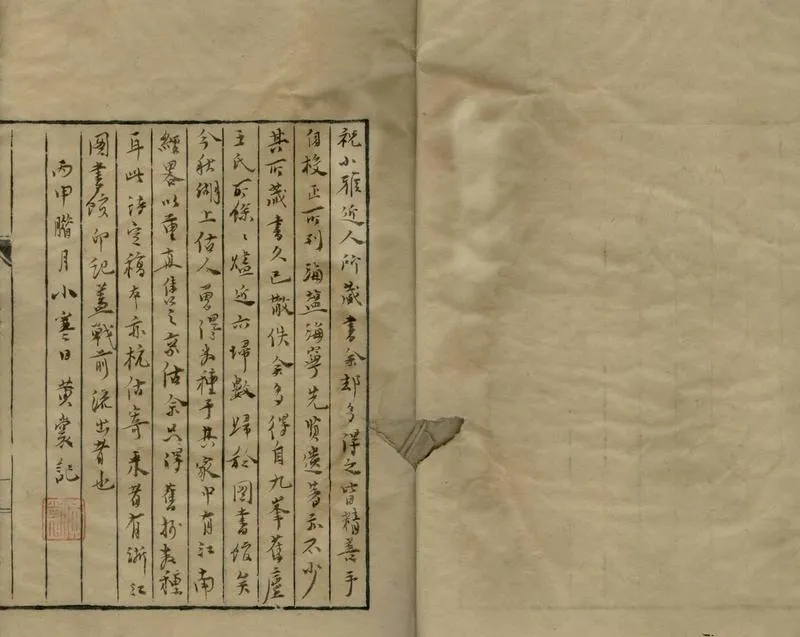 祝小雅近人所藏書余却多得之皆精善手
自校正所刊海鹽海寧先賢遺著亦不少
其所藏書久已散佚余多得自九峯舊廬
王氏所餘〻燼近亦歸數歸於圖書館矣
今秋湖上估人曾得數種于其家中有江南
經畧以重直售之京估余只得舊抄數種
耳此詩定稿本亦杭估寄來者有浙江
圖書館印記蓋戰前流出者也
丙申腊月小寒日黄裳記